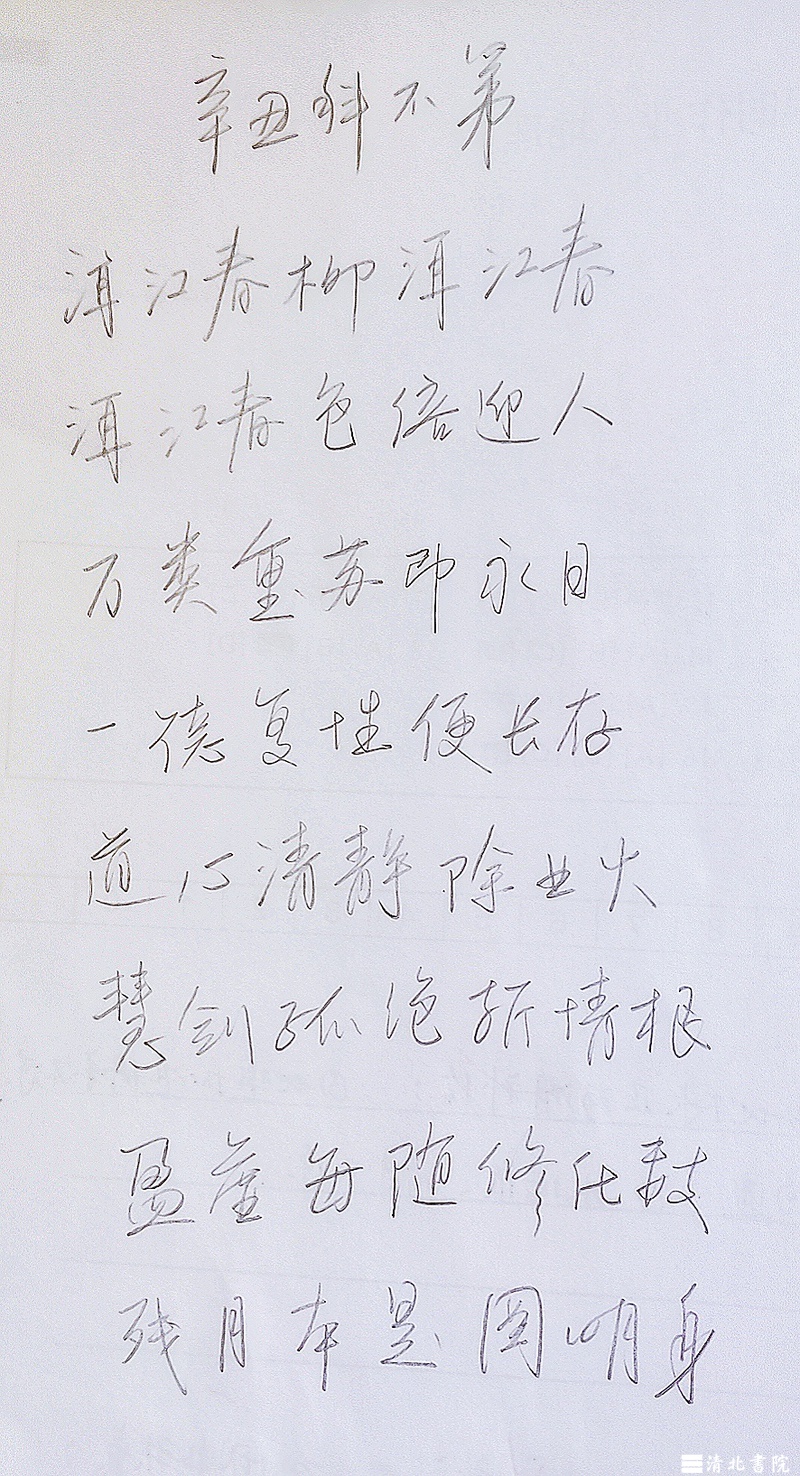 辛丑科不第
洱江春柳洱江春
洱江春色倍迎人
万类重苏即永日
一德复性便长存
道心清静除业火
慧剑孤绝斩情根
盈虚每随修化数
残月本是圆明身
清北書院